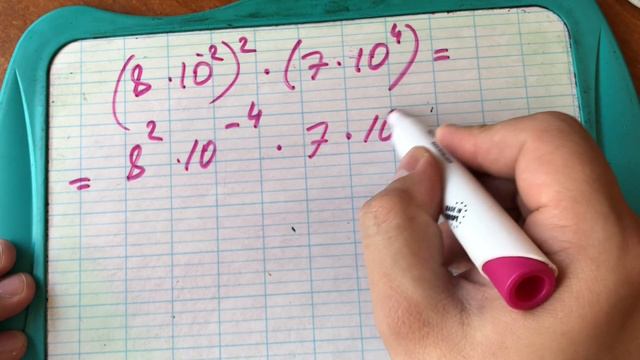 (8 · 10⁻²)² · (7 · 10⁴) =
= 8² · 10⁻⁴ · 7 · 10